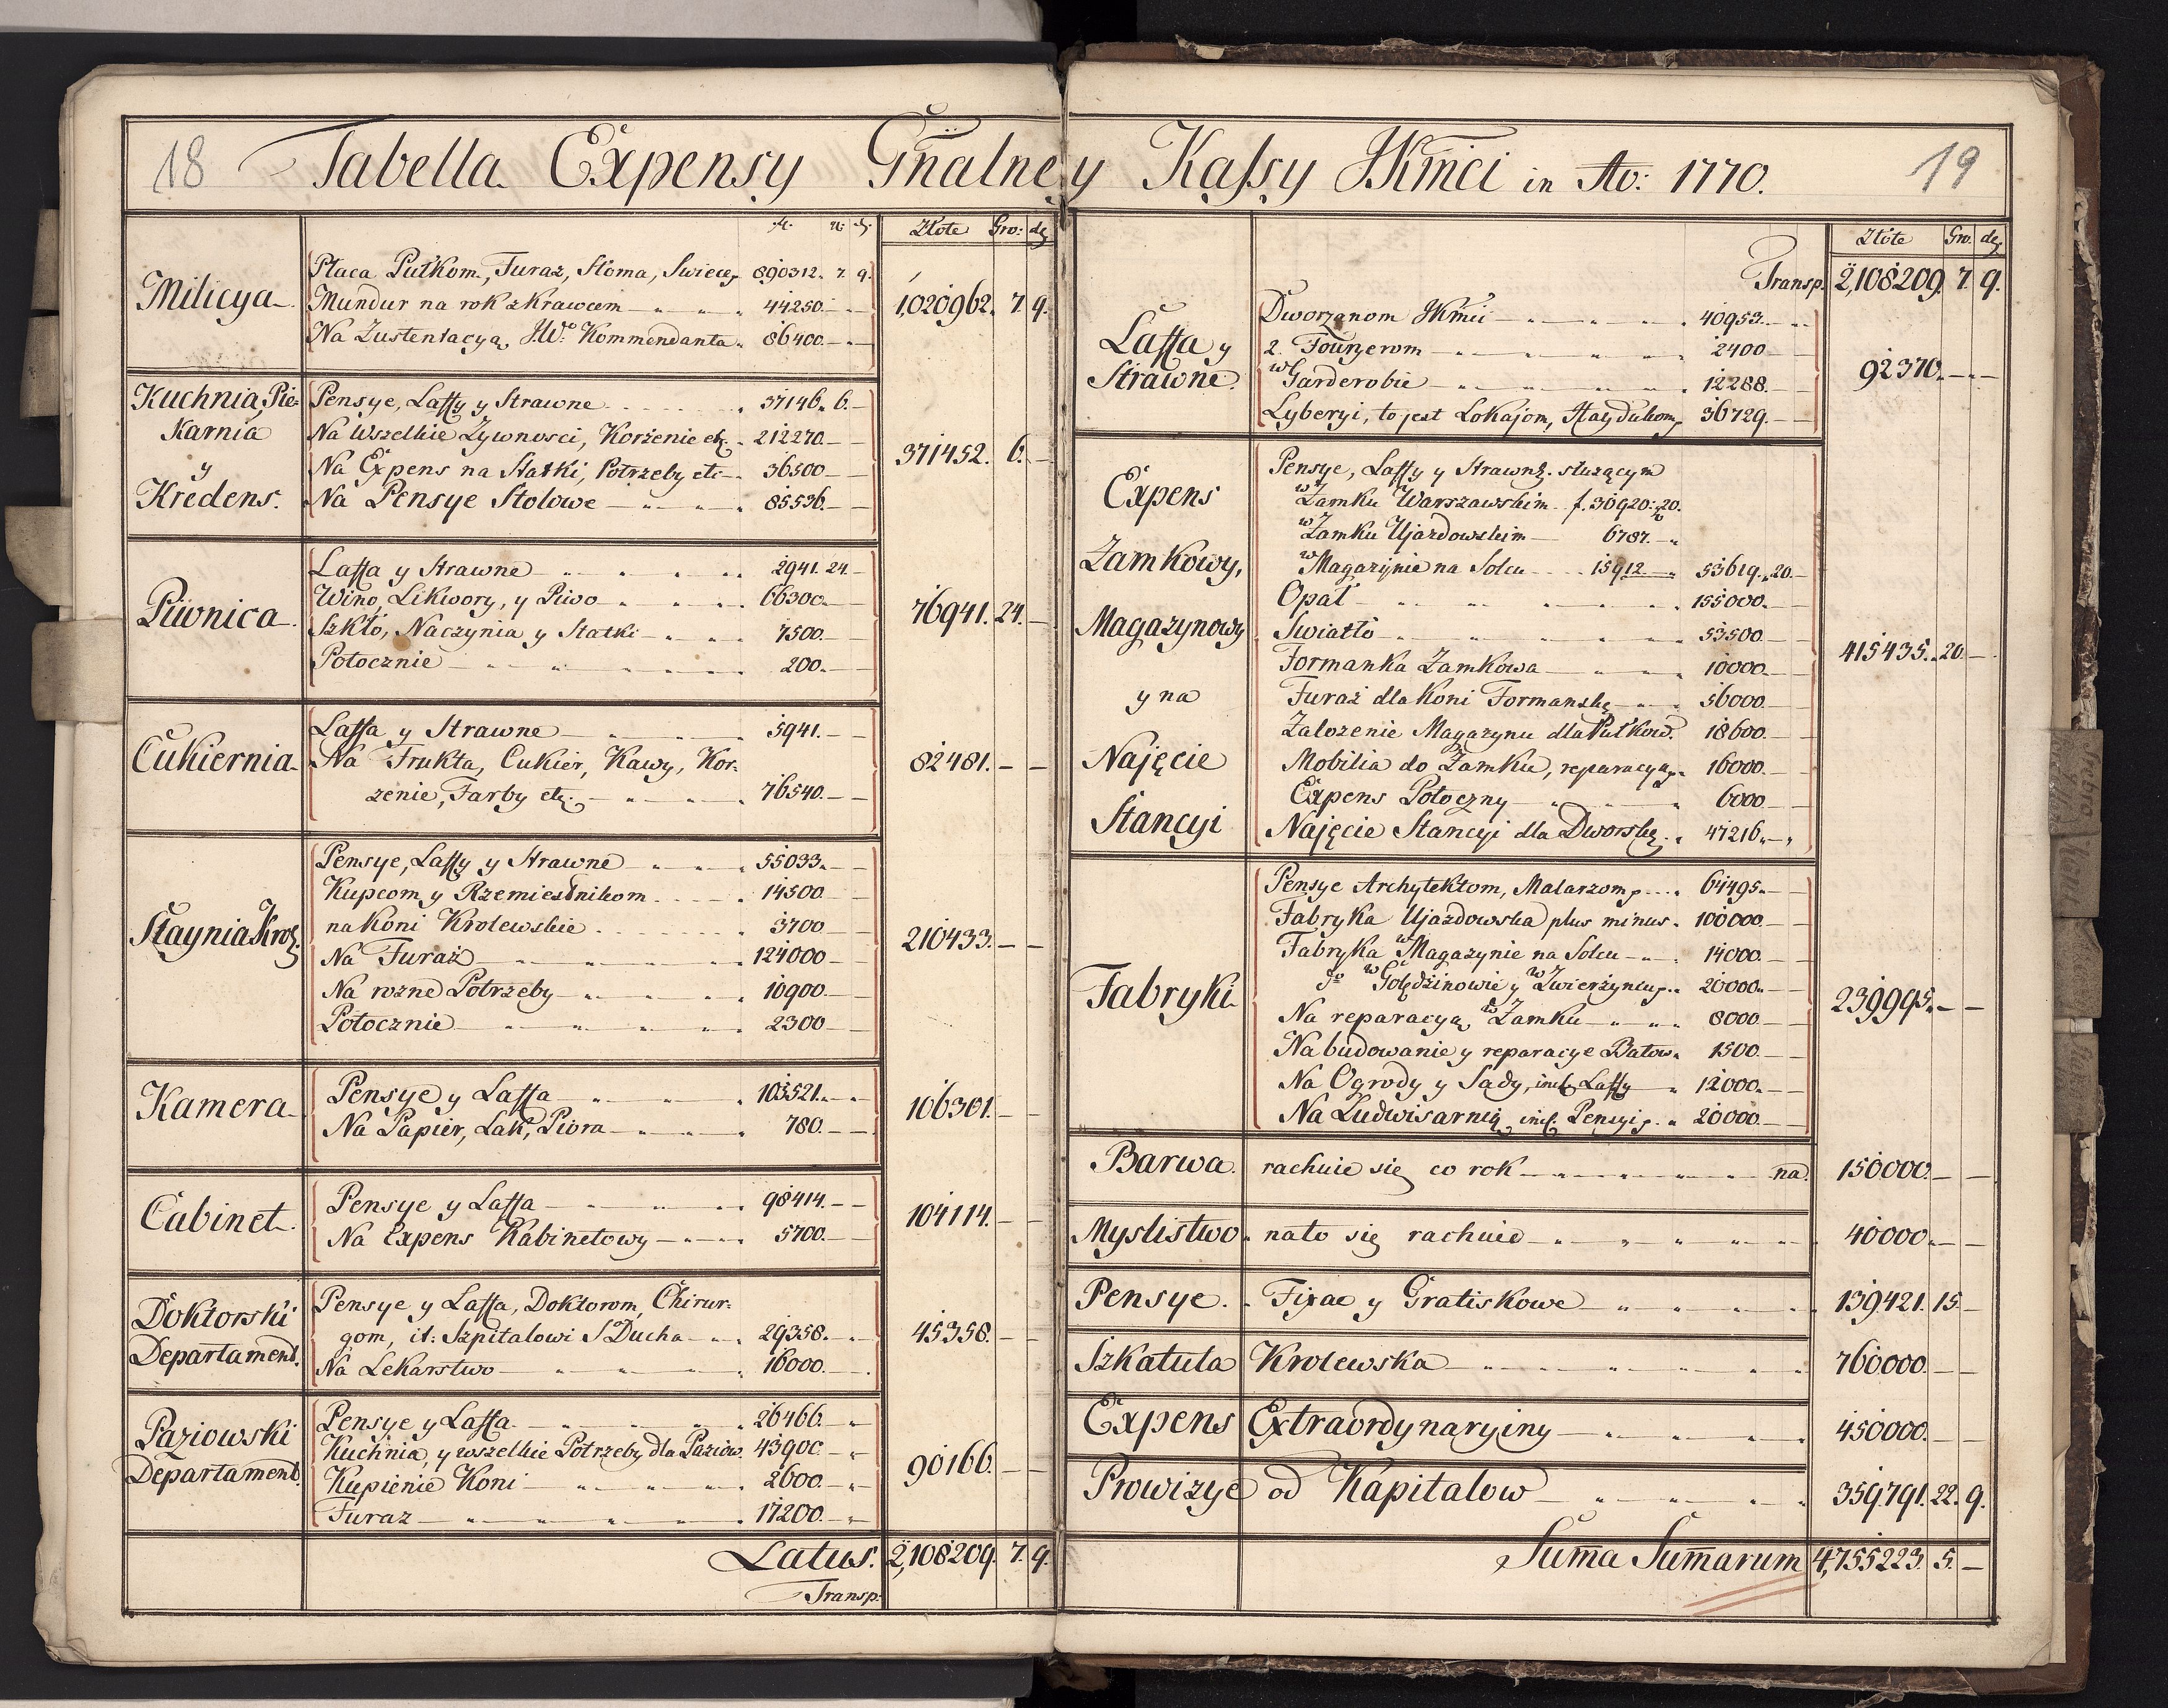 18 Tabella Expensy Gnalney Kassy JKmci in Ao: 1770. 19
Złote Gro: dę
Milicya
Płaca Pułkom, Furaż, Słoma, Swiece 890312. 7. 9.
Mundur na rok z Krawcem 44250.
Na Zustentacyą JWo. Kommendanta 86400.
1,020962. 7. 9.
Kuchnia, Pie-
karnia
y
Kredens.
Pensye, Lassy y Strawne 37146. 6.
Na Wszelkie Zywnosci, Korzenie etc. 212270.
Na Expens na Statki, Potrzeby etc 36500
Na Pensye Stolowe 85536.
371452. 6.
Piwnica
Lassa y Strawne 2941. 24.
Wino, Likwory, y Piwo 66300.
Szkło, Naczynia y Statki 7500.
Potocznie 200.
76941. 24.
Cukiernia
Lassa y Strawne 5941.
Na Frukta, Cukier, Kawy, Kor:
zenie, Farby etc. 76540.
82481.
Staynia Krol.
Pensye, Lassy y Strawne 55033.
Kupcom y Rzemiesłnikom 14500.
na Koni Krolewskie 3700
Na Furaż 124000
Na rozne Potrzeby 10900.
Potocznie 2300
210433.
Kamera
Pensye y Lassa 105521.
Na Papier, Lak, Piora 780.
106301.
Cabinet
Pensye y Lassa 98414.
Na Expens Kabinetowy 5700.
104114.
Doktorski
Departament.
Pensye y Lassa, Doktorom, Chirur:
gom, it: Szpitalowi S Ducha 29358.
Na Lekarstwo 16000.
45358.
Paziowski
Departament.
Pensye y Lassa 26466.
Kuchnia, y wszelkie Potrzeby dla Paziow. 43900.
Kupienie Koni 2600.
Furaz 17200.
90166.
Latus. 2,108209. 7. 9.
Transp:
Złote Gro. dę
Transp. 2,108209. 7. 9.
Lassa y
Strawne.
Dworzanom JKmci 40953.
2. Fourÿerom 2400
w Garderobie 12288.
Lyberyi, to jest Lokajom, Haydukom 36729.
92370.
Expens
Zamkowy,
Magazynowy
y na
Najęcie
Stancyi
Pensye, Lassy y Strawne służącym
w Zamku Warszawskim f. 30920: 20.
w Zamku Ujazdowskim 6787.
w Magazynie na Solcu 15912 53619. 20.
Opał 155000.
Swiatło 53500.
Formanka Zamkowa 10000.
Furaż dla Koni Formanskę 56000.
Założenie Magazynu dla Pułkow. 18600.
Mobilia do Zamku, reparacya 16000.
Expens Potoczny 6000
Najęcie Stancyi dla Dworskę 47216.
415435. 20.
Fabryki
Pensye Archytektom, Malarzom 64495.
Fabryka Ujazdowska plus minus. 100000.
Fabryka w Magazynie na Solcu 14000.
do w Golędzinowie y w Zwierzyncu 20000.
Na reparacyą w Zamku 8000.
Na budowanie y reparacye Batow. 1500.
Na Ogrody y Sady, incl. Lassy 12000.
Na Ludwisarnią, incl. Pensyi 20000.
239995.
Barwa. rachuie się co rok na. 150000.
Myslistwo nato się rachuie 40000.
Pensye. Fixae y Gratiskowe 139421. 15.
Szkatuła Krolewska 760000.
Expens Extraordynaryiny 450000.
Prowizye od Kapitalow 359791. 22. 9.
Suma Sumarum 4,755223. 5.